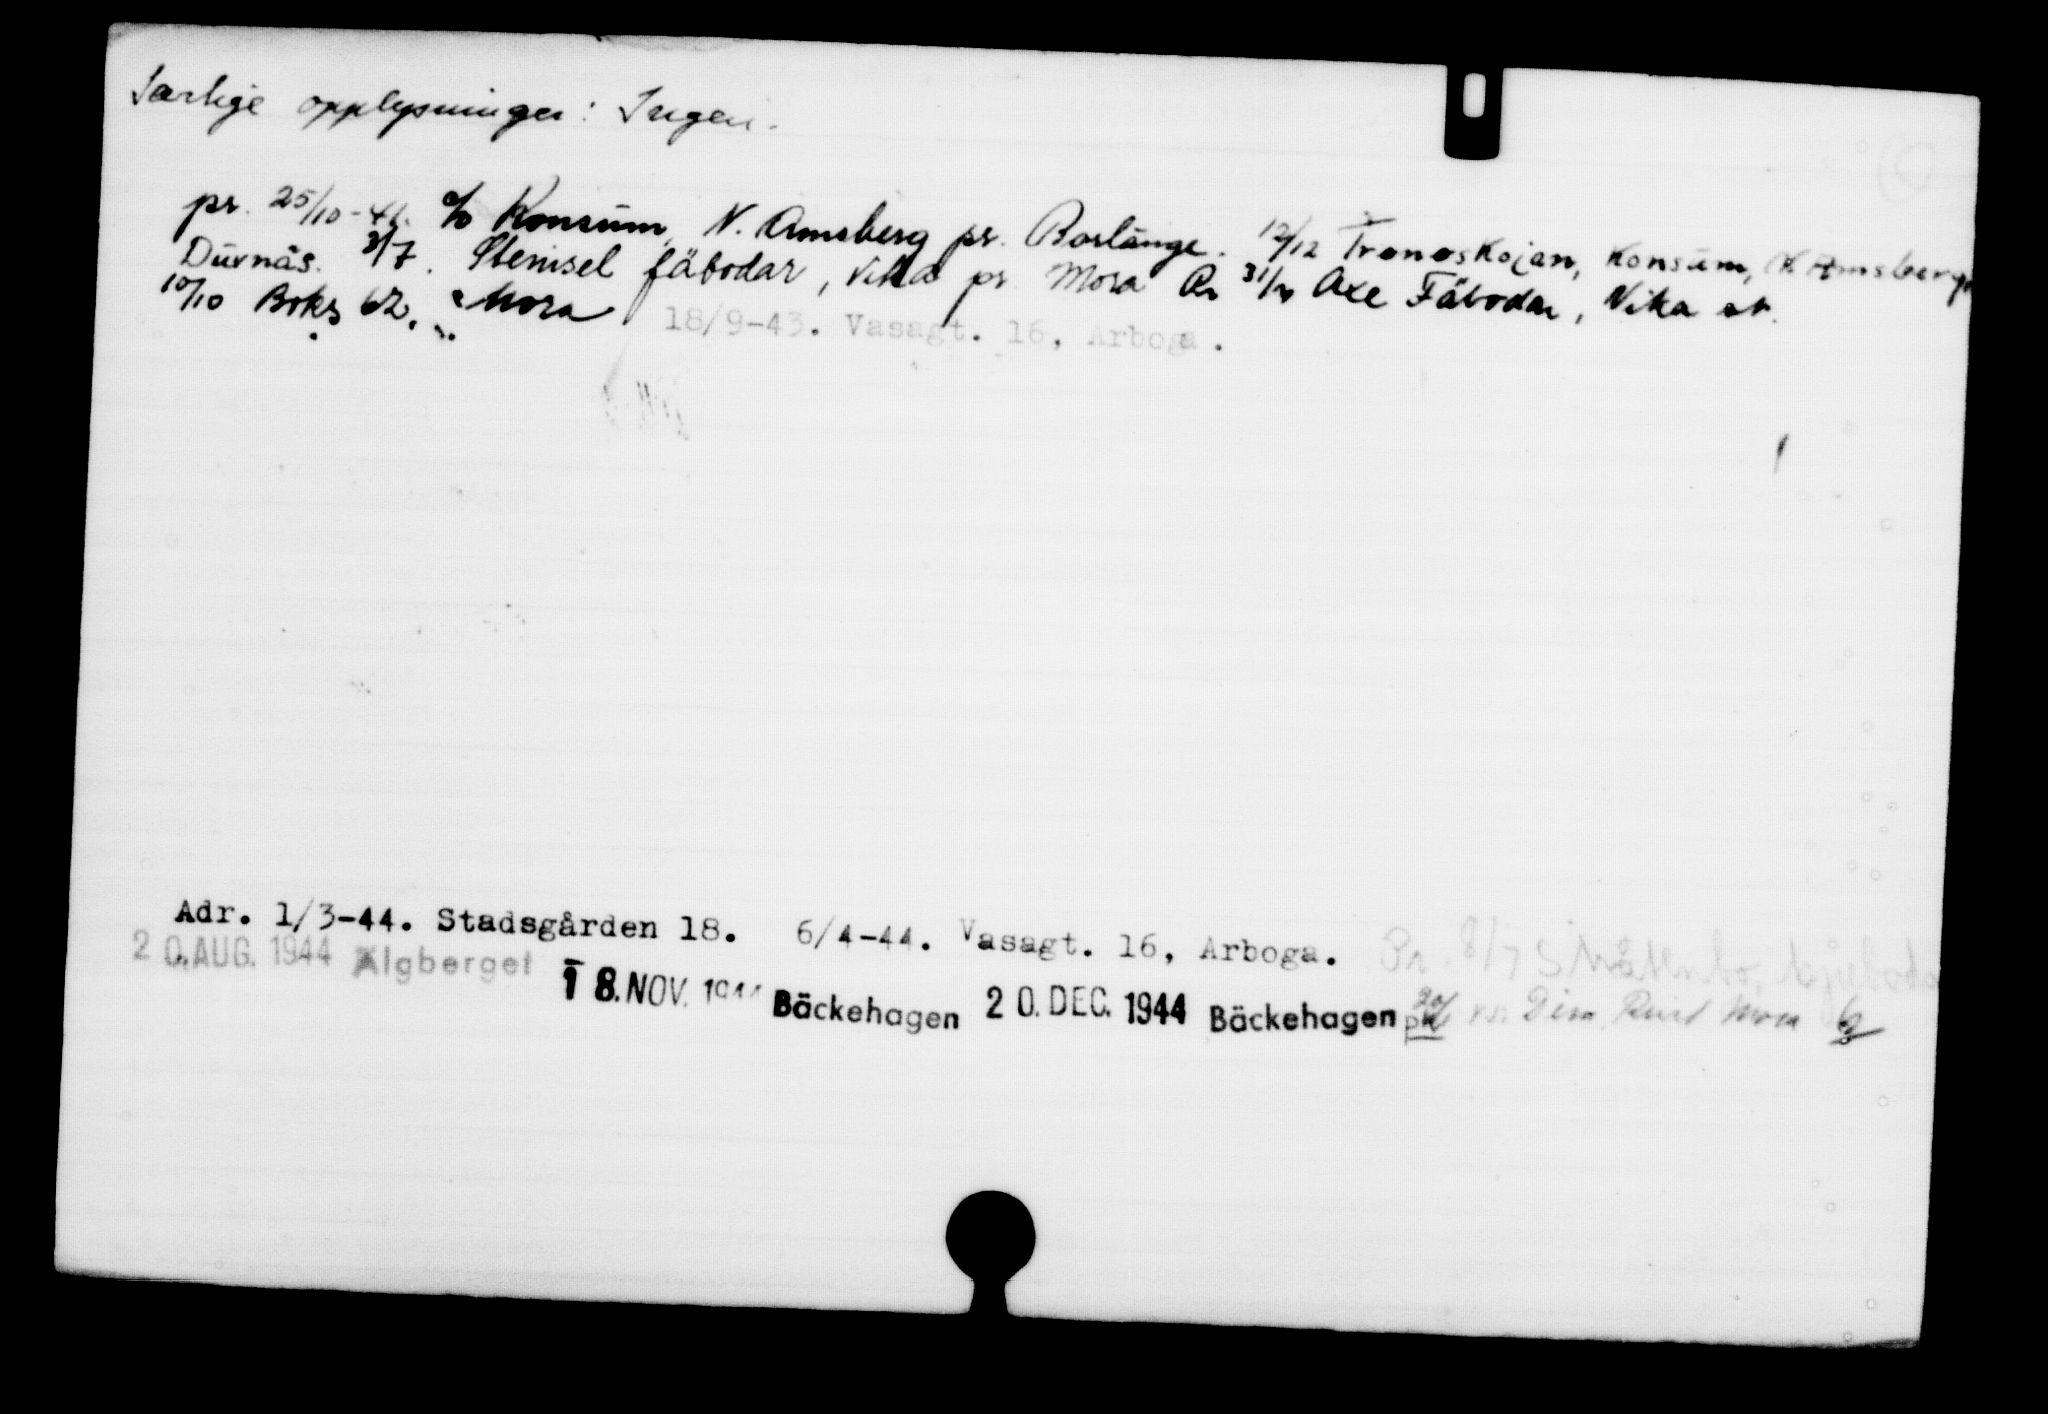 Særlige opplysninger: Ingen.
pr. 25/10-41. c/o Konsum, N. Amsberg pr. Borlänge. 12/12 Tronoskojan, Konsum, N Amsberg.
Durnäs. 3/7. Stenisel fäbodar, Vika pr. Mora Pr 31/ Axe Fäbodar, Vika st.
10/10 Boks 62. Mora
18/9-43. Vasagt. 16, Arboga.
Adr. 1/3-44. Stadsgården 18. 6/4-44. Vasagt. 16, Arboga. Pr. 8/7
20. AUG. 1944 Älgberget 18. NOV. 1944 Bäckehagen 20. DEC. 1944 Bäckehagen Mora